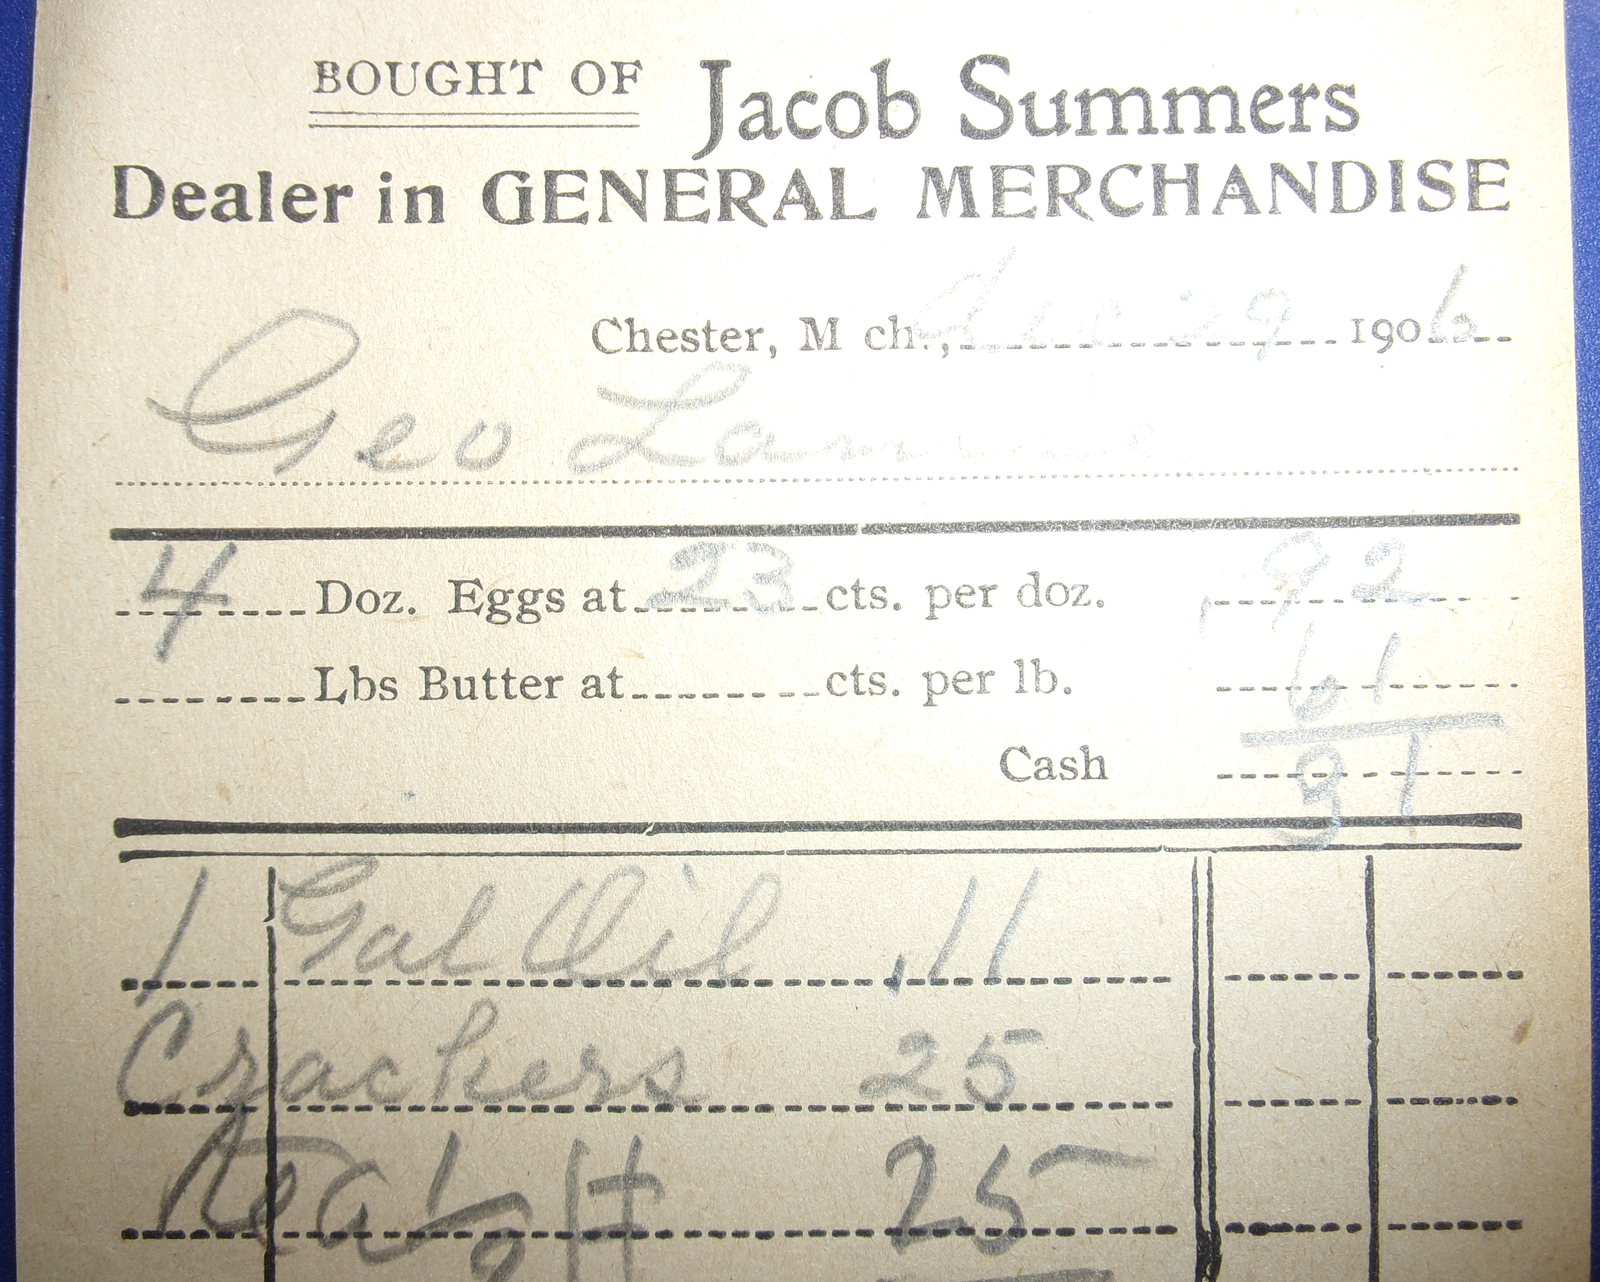 BOUGHT OF Jacob Summers
Dealer in GENERAL MERCHANDISE
Chester, Mich., Dec 29 1906
Geo
4 Doz. Eggs at 23 cts. per doz. 92
Lbs Butter at cts. per lb. 61
Cash 31
1 Gal Oil .11
Crackers 25
Tea ½ # 25